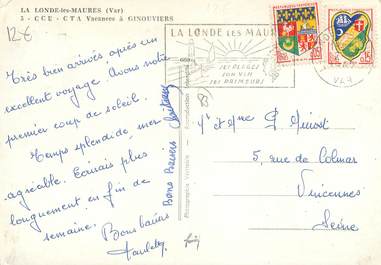 LA LONDE-les-MAURES (Var)
5 - CCE - CTA Vacances à GINOUVIERS
12€
LA LONDE LES MAURES
SES PLAGES
SON VIN
SES PRIMEURS
VAR
Très bien arrivés, après un
excellent voyage. Avons notre
premier coup de soleil.
Temps splendide, mer
agréable. Ecrirais plus
longuement en fin de
semaine.
Bons baisers
Paulette
Bons Baisers
83
M et Mme
5, rue de Colmar
Vincennes
Seine